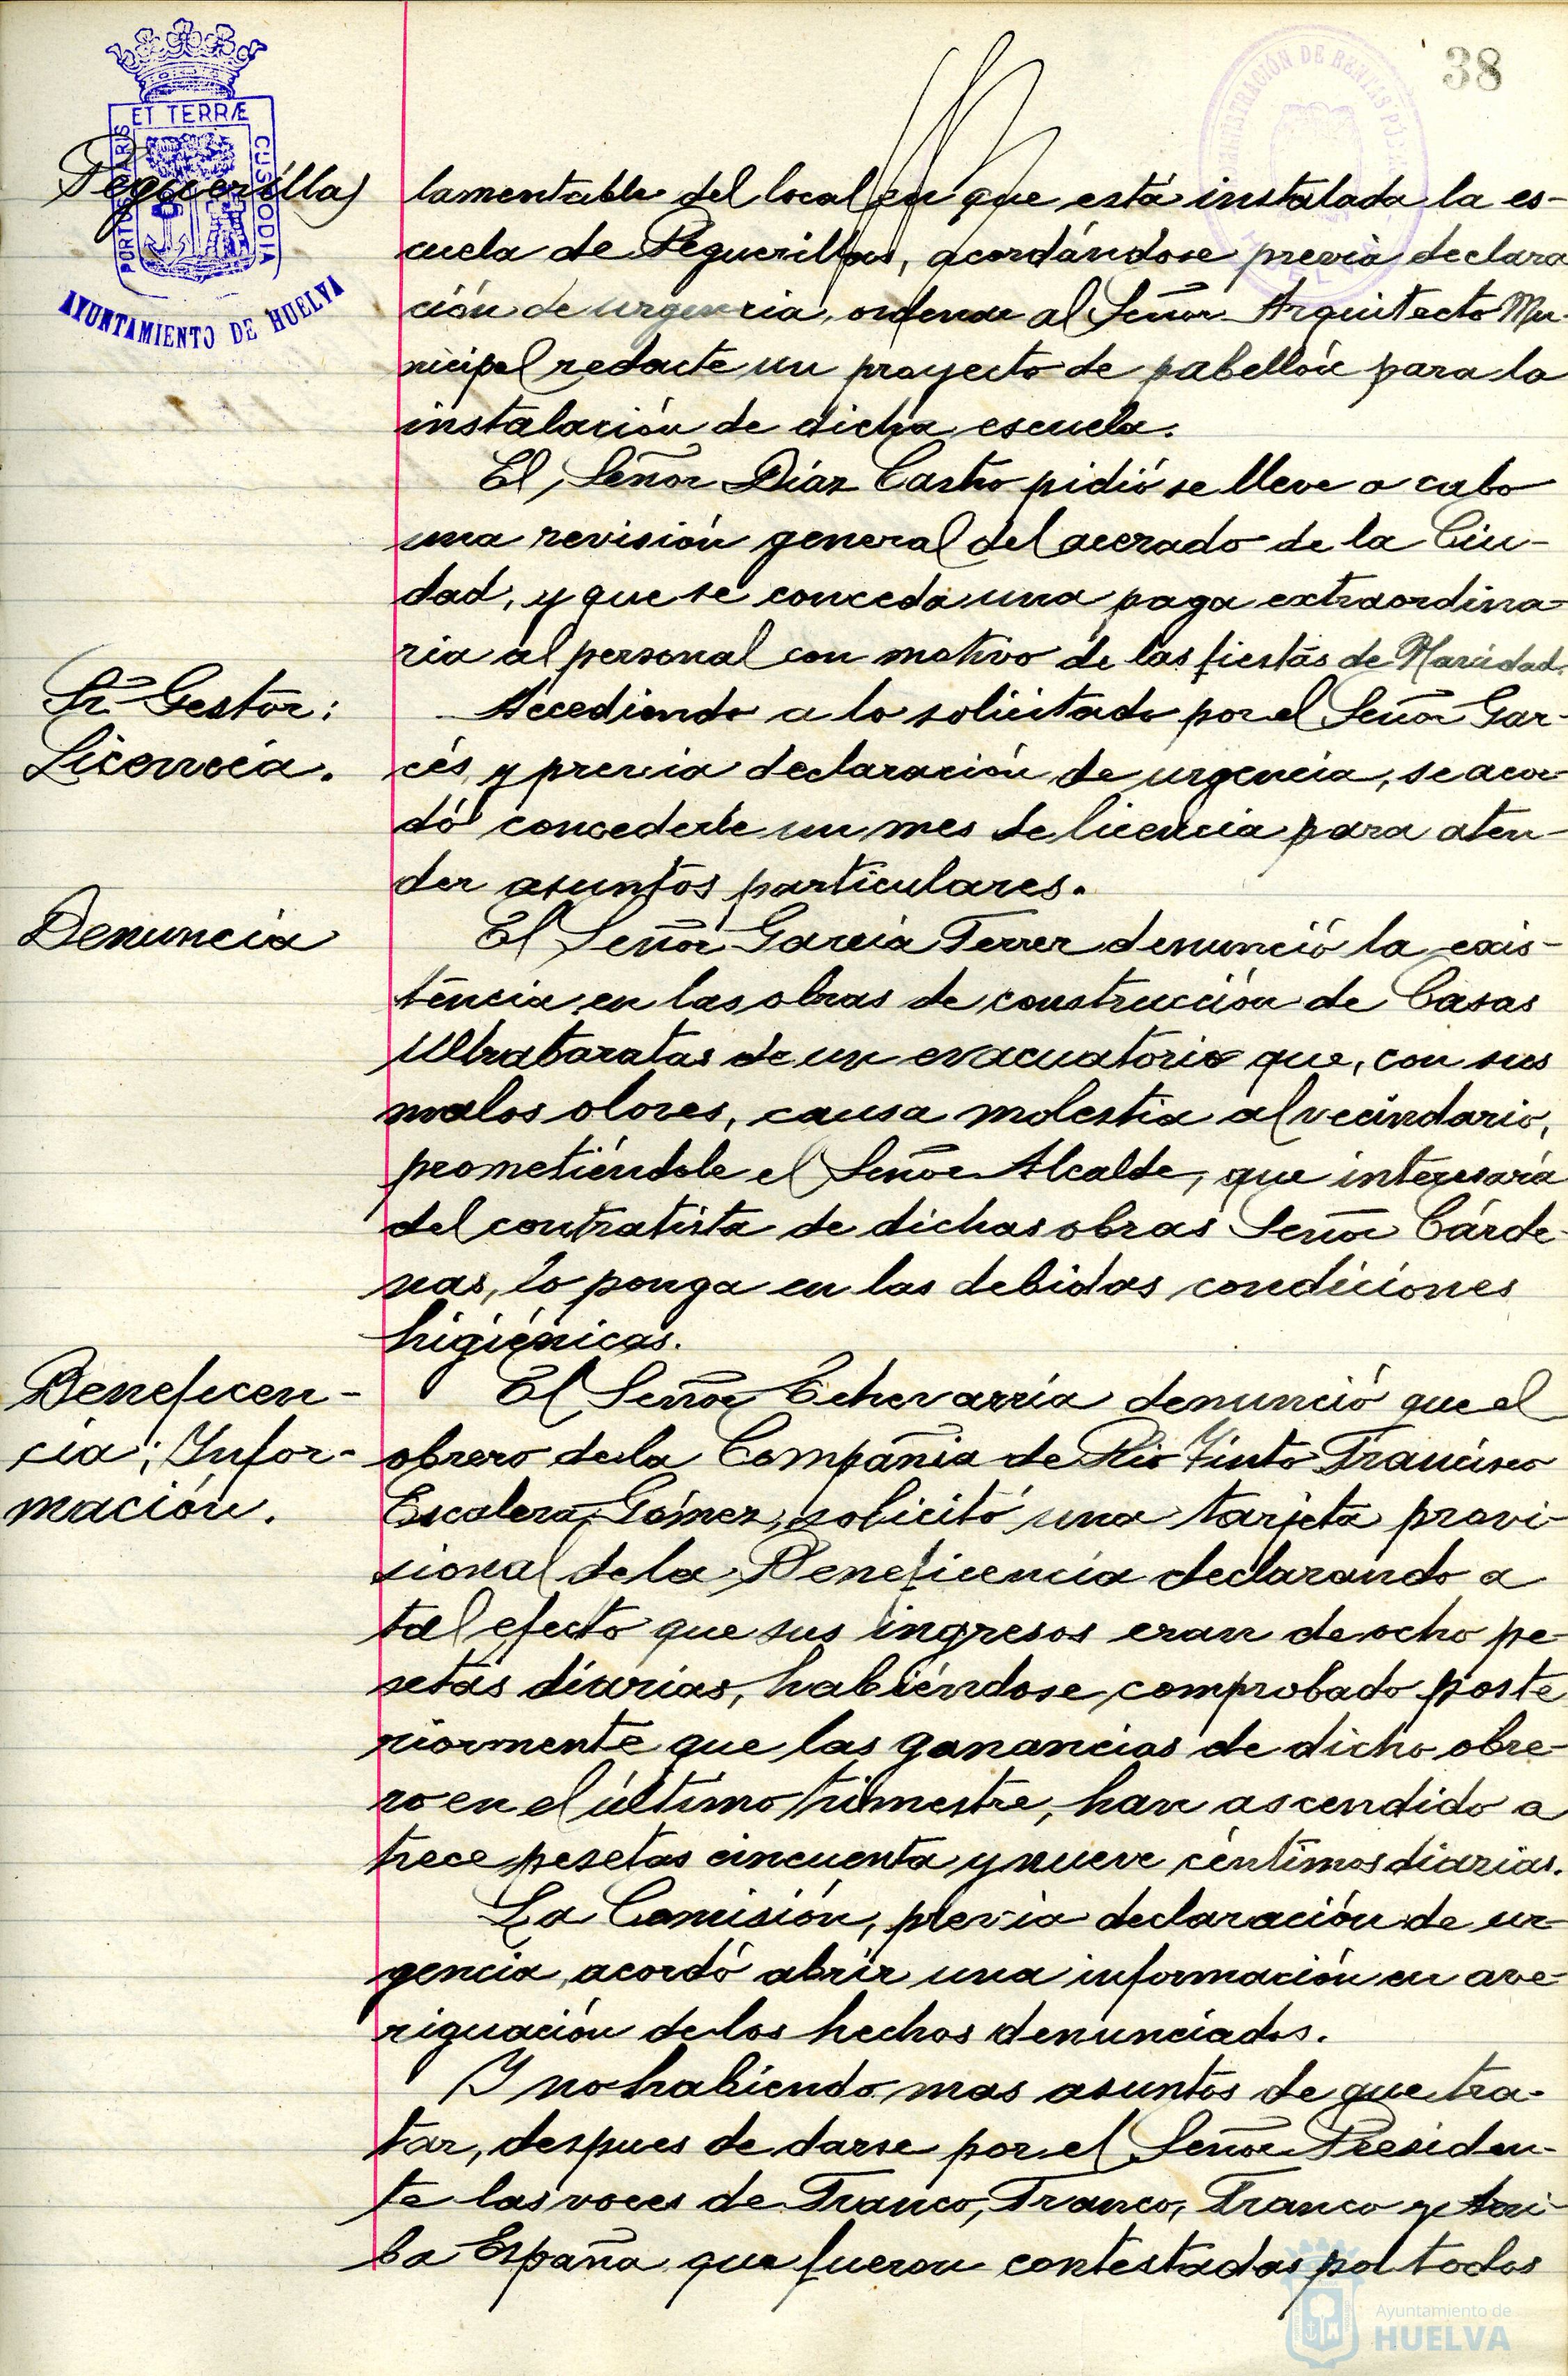 38
ET TERRÆ
PORTUS MARIS
CUSTODIA
AYUNTAMIENTO DE HUELVA
ADMINISTRACIÓN DE RENTAS PÚBLICAS
Peguerilla)
lamentable del local en que está instalada la es-
cuela de Peguerillas, acordándose previa declara
ción de urgencia, ordenar al Señor Arquitecto Mu-
nicipal redacte un proyecto de pabellón para la
instalación de dicha escuela.
El Señor Díaz Castro pidió se lleve a cabo
una revisión general del acerado de la Ciu-
dad, y que se conceda una paga extraordina-
ria al personal con motivo de las fiestas de Navidad.
Sr. Gestor:
Licencia.
Accediendo a lo solicitado por el Señor Gar-
cés, y previa declaración de urgencia, se acor-
dó concederle un mes de licencia para aten-
der asuntos particulares.
Denuncia
El Señor García Ferrer denunció la exis-
tencia en las obras de construcción de Casas
Ultrabaratas de un evacuatorio que, con sus
malos olores, causa molestia al vecindario,
prometiéndole el Señor Alcalde, que interesaría
del contratista de dichas obras Señor Cárde-
nas, lo ponga en las debidas condiciones
higiénicas.
Beneficen-
cia; Infor-
mación.
El Señor Echevarría denunció que el
obrero de la Compañía de Rio Tinto Francisco
Escalera Gómez, solicitó una tarjeta provi-
sional de la Beneficencia declarando a
tal efecto que sus ingresos eran de ocho pe-
setas diarias, habiéndose comprobado poste
riormente que las ganancias de dicho obre-
ro en el último trimestre, han ascendido a
trece pesetas cincuenta y nueve céntimos diarias.
La Comisión, previa declaración de ur-
gencia, acordó abrir una información en ave-
riguación de los hechos denunciados.
Y no habiendo mas asuntos de que tra-
tar, despues de darse por el Señor Presiden-
te las voces de Franco, Franco, Franco y Arri-
ba España que fueron contestadas por todos
Ayuntamiento de
HUELVA